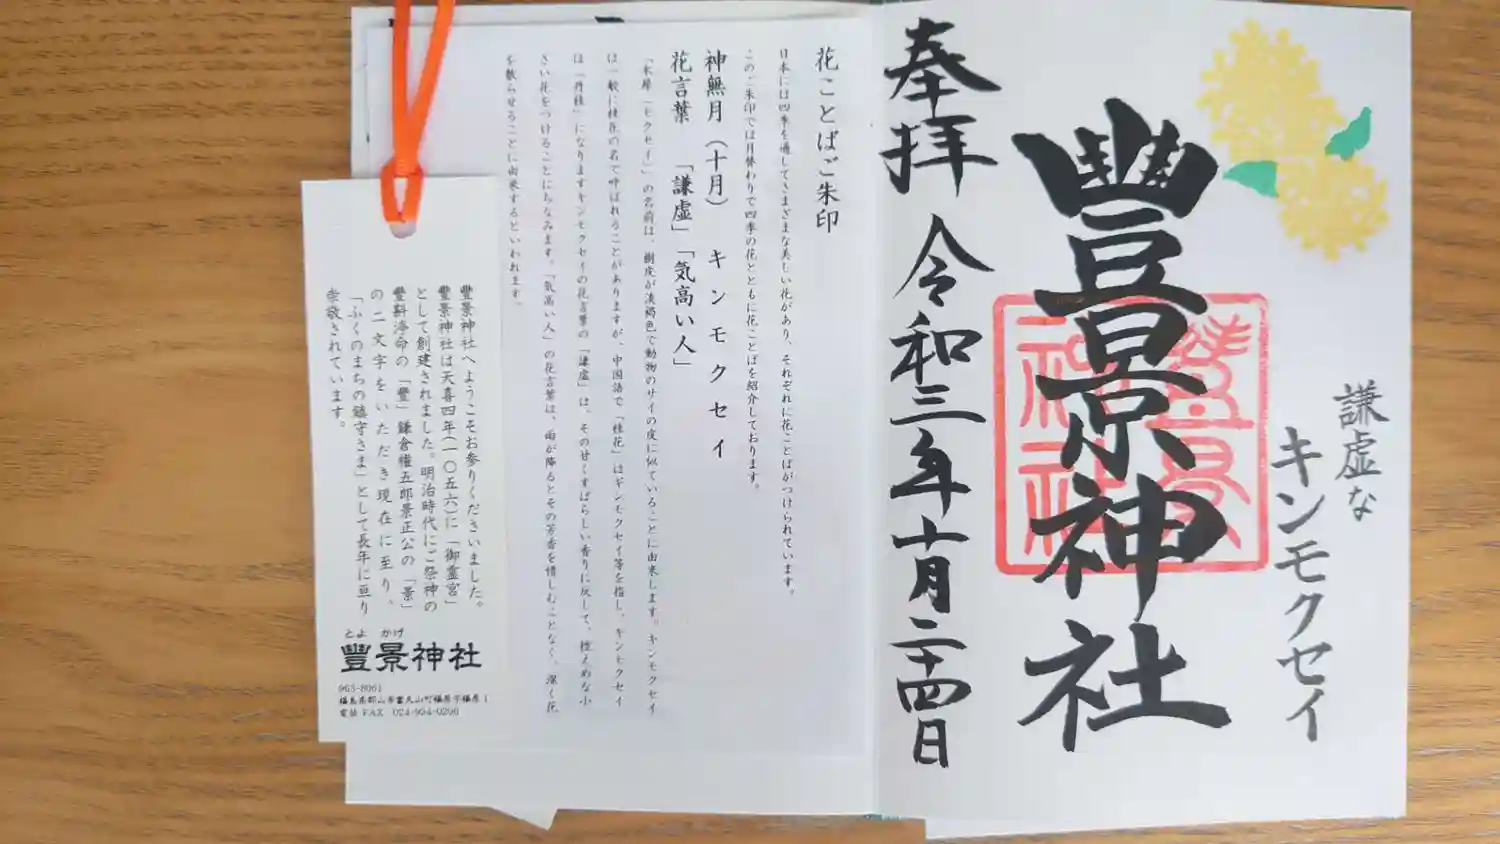 謙虚な
キンモクセイ
豐景神社
奉拝
令和三年十月二十四日
花ことばご朱印
日本には四季を通してさまざまな美しい花があり、それぞれに花ことばがつけられています。
このご朱印では月替わりで四季の花とともに花ことばを紹介しております。
神無月（十月） キンモクセイ
花言葉 「謙虚」「気高い人」
「木犀（モクセイ）」の名前は、樹皮が淡褐色で動物のサイの皮に似ていることに由来します。キンモクセイ
は一般に桂花の名で呼ばれることがありますが、中国語で「桂花」はギンモクセイ等を指し、キンモクセイ
は「丹桂」になりますキンモクセイの花言葉の「謙虚」は、その甘くすばらしい香りに反して、控えめな小
さい花をつけることにちなみます。「気高い人」の花言葉は、雨が降るとその芳香を惜しむことなく、潔く花
を散らせることに由来するといわれます。
豐景神社へようこそお参りくださいました。
豐景神社は天喜四年(一〇五六)に「御霊宮」
として創建されました。明治時代にご祭神の
豐斟渟命の「豐」鎌倉権五郎景正公の「景」
の二文字をいただき現在に至り、
「ふくのまちの鎮守さま」として長年に亘り
崇敬されています。
とよ かげ
豐景神社
963-8061
福島県郡山市富久山町福原字福原1
電話FAX 024-934-0206